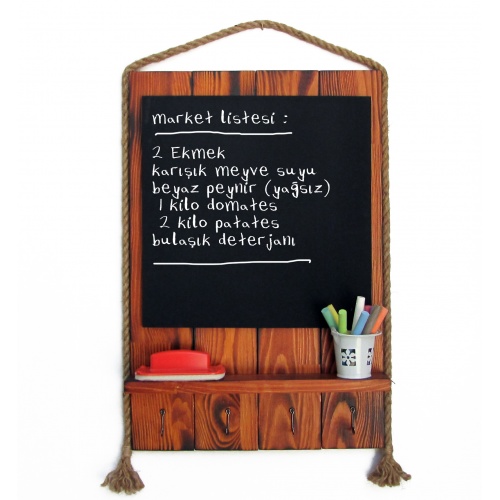 market listesi :
2 Ekmek
karışık meyve suyu
beyaz peynir (yağsız)
1 kilo domates
2 kilo patates
bulaşık deterjanı